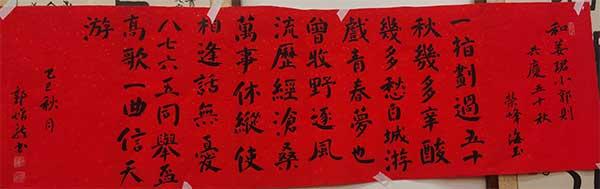 和姜珺小郭
共慶五十秋
峰海玉
一指劃過五十
秋幾多辛酸
幾多愁自城游
戲青春夢也
曾牧野逐風
流歷經滄桑
萬事休縱使
相逢話無憂
八七六五同舉盃
高歌一曲信天
游
乙巳秋月
郭怡書